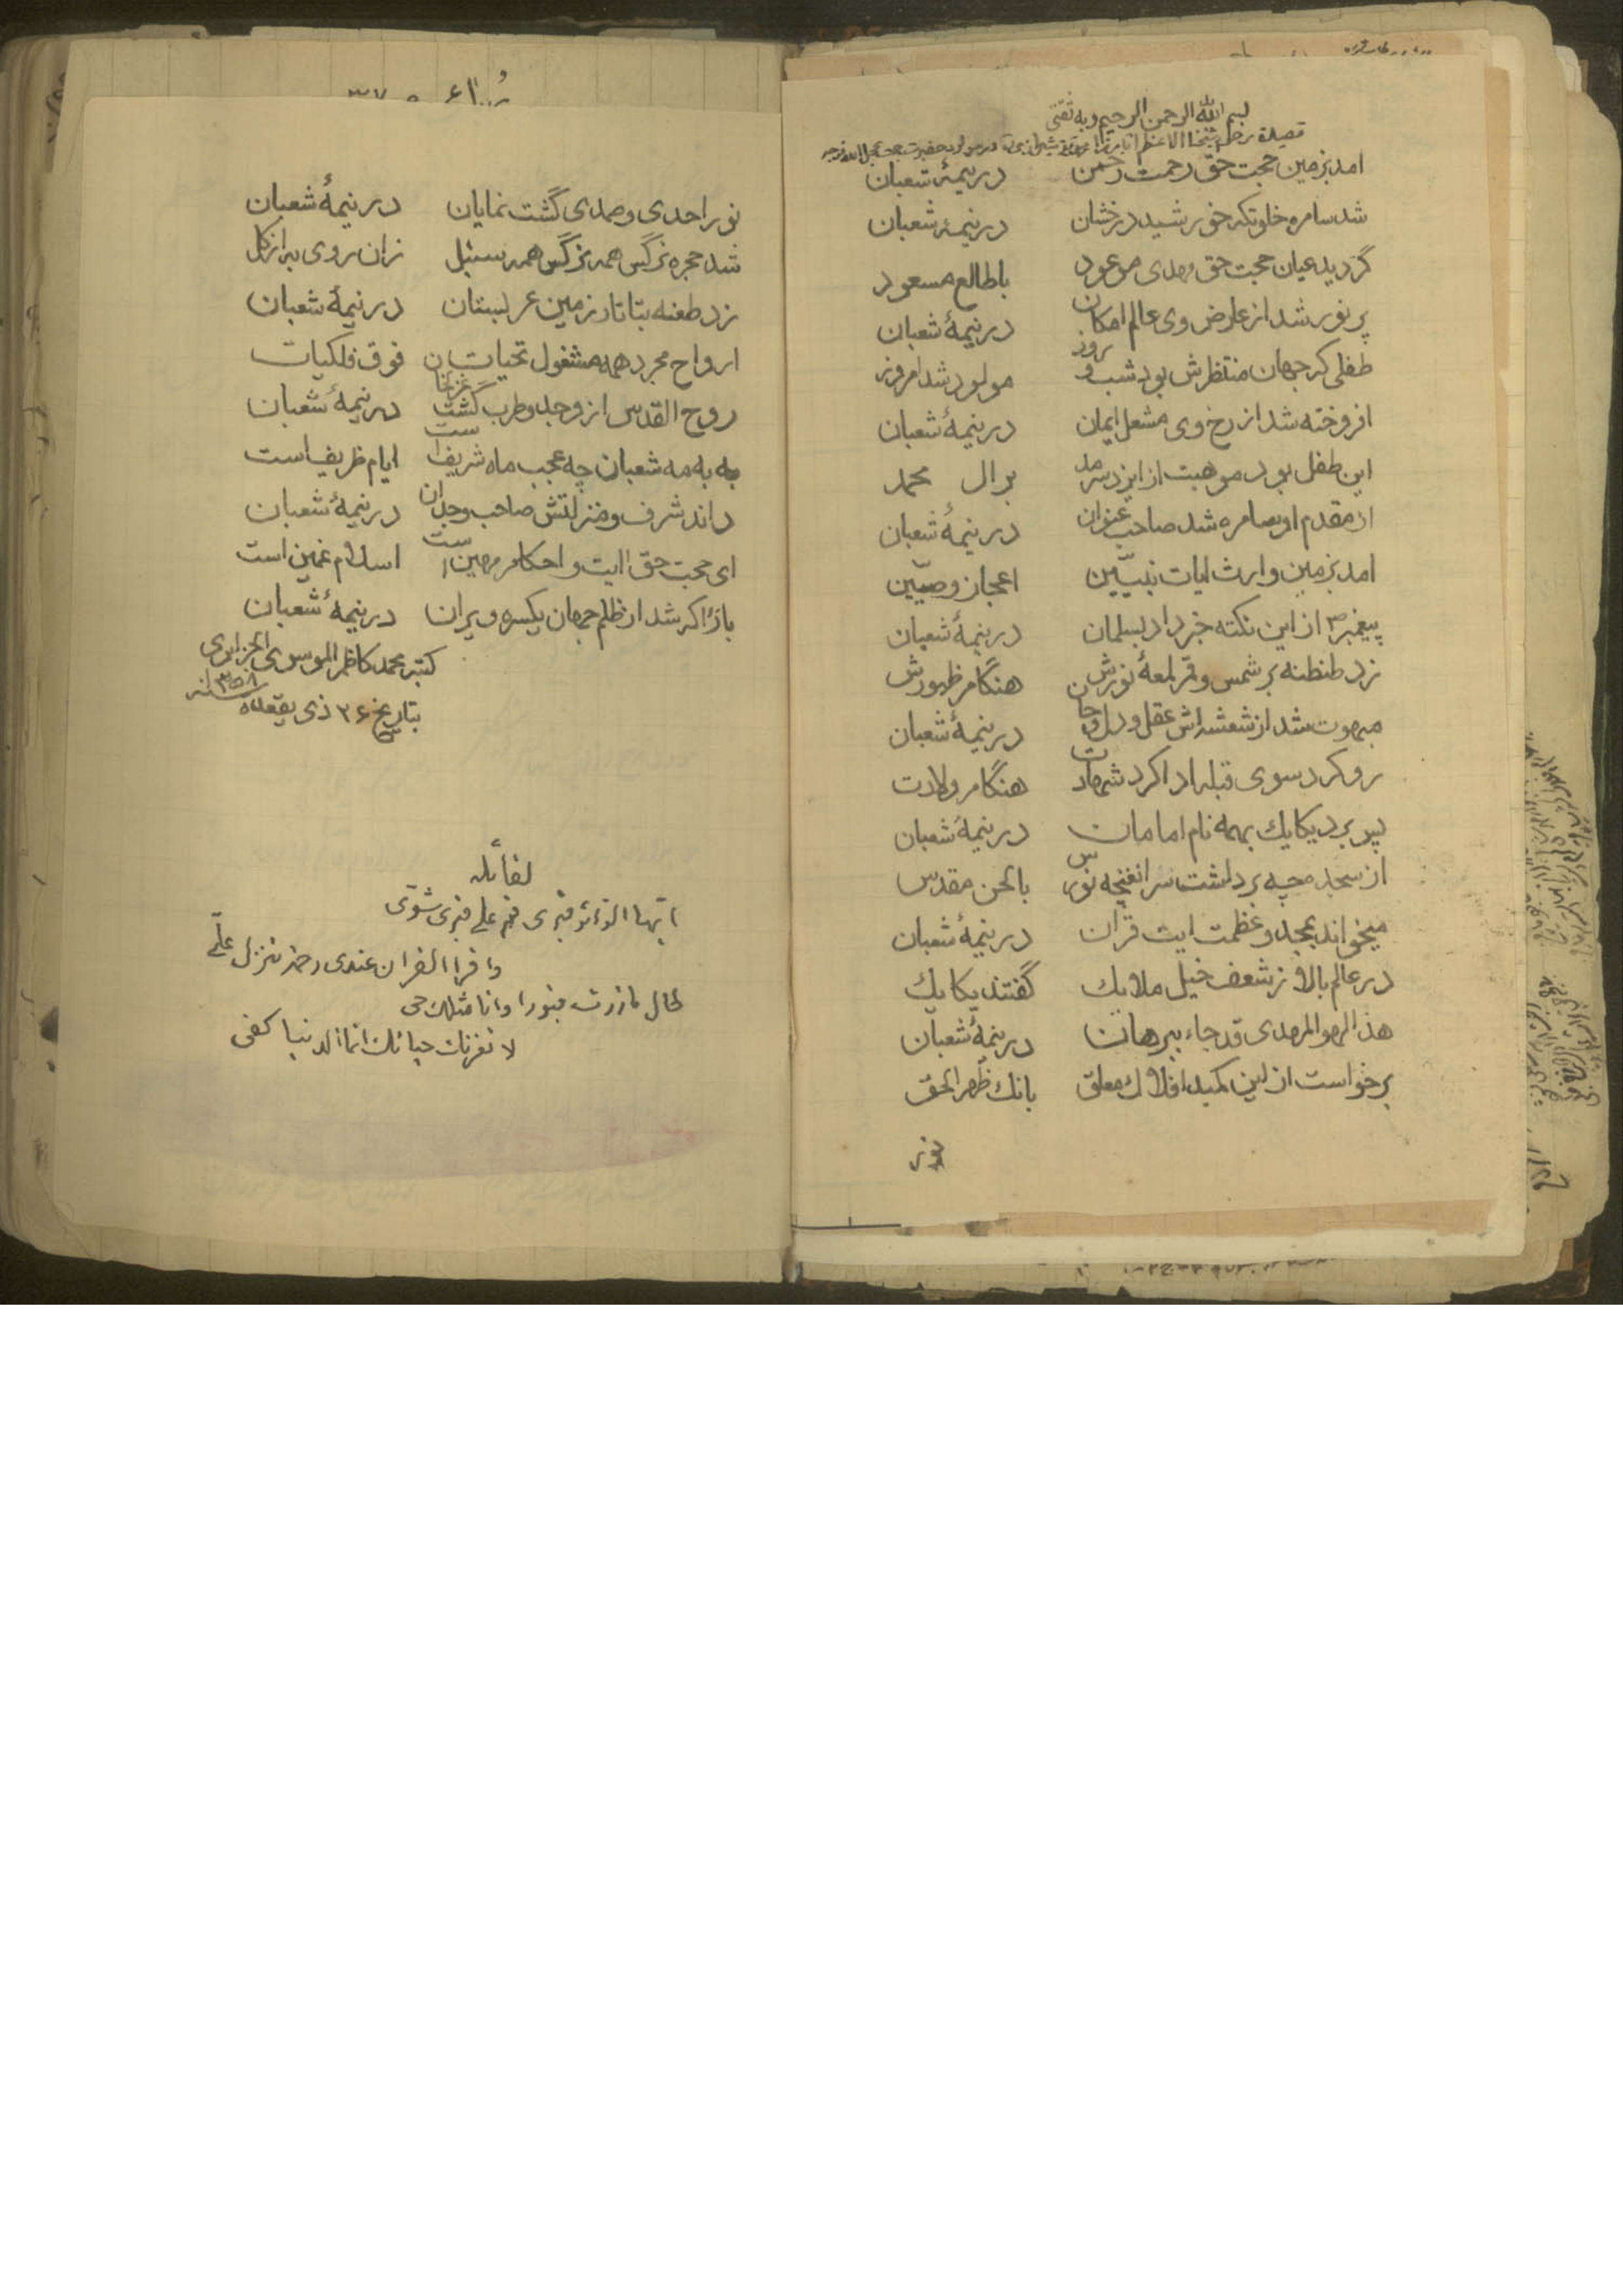 بسم الله الرحمن الرحیم وبه ثقتی
امد بزمین حجت حق رحمت رحمن در نیمهٔ شعبان
شد سامره خلوتکه خورشید درخشان در نیمهٔ شعبان
گردید عیان حجت حق مهدی موعود باطالع مسعود
پر نور شد از عارض وی عالم امکان در نیمهٔ شعبان
طفلی که جهان منتظرش بود شب و روز مولود شد امروز
افروخته شد از رخ وی مشعل ایمان در نیمهٔ شعبان
این طفل بود موهبت از ایزد سرمد بر ال محمد
از مقدم او سامره شد صاحب عنوان در نیمهٔ شعبان
امد بزمین وارث ایات نبیّین اعجاز وصیّین
پیغمبر ص از این نکته خبر داد بسلمان در نیمهٔ شعبان
زد طنطنه بر شمس و قمر لمعهٔ نورش هنگام ظهورش
مبهوت شد از شعشه اش عقل و دل و جان در نیمهٔ شعبان
رو کرد سوی قبله ادا کرد شهادت هنگام ولادت
پس برد یکایك بهمه نام امامان در نیمهٔ شعبان
از سجده چه برداشت سر انغنچه نورس بالحن مقدس
میخواند بمجد و عظمت ایت قران در نیمهٔ شعبان
در عالم بالا ز شعف خیل ملایك گفتند یکایك
هذا لهو المهدی قد جاء ببرهان در نیمهٔ شعبان
برخواست از این کمبد افلاك معلق بانك ظهر الحق
نور احدی و صمدی گشت نمایان در نیمهٔ شعبان
شد حجره نرگس همه نرگس همه سنبل زان روی به از کل
زد طعنه بتاتار زمین عربستان در نیمهٔ شعبان
ارواح مجرد همه مشغول تحیات فوق فلکیات
روح القدس از وجد و طرب گشت غزلخان در نیمهٔ شعبان
به به مه شعبان چه عجب ماه شریف است ایام ظریف است
داند شرف و منزلتش صاحب وجدان در نیمهٔ شعبان
ای حجت حق ایت و احکام مهین است اسلام غمین است
بازا که شد از ظلم جهان یکسره ویران در نیمهٔ شعبان
کتبه محمد کاظم الموسوی الجزایری
بتاریخ ۲۶ ذی یقعده سنه ۱۳۵۸
لقائله
ایها الزائر قبری قم علی قبری شوی
واقرا القران عندی رحمة تنزل علیّ
طال مازرت قبورا وانا مثلك حی
لا تغرنك حیاتك انما الدنیا كفی